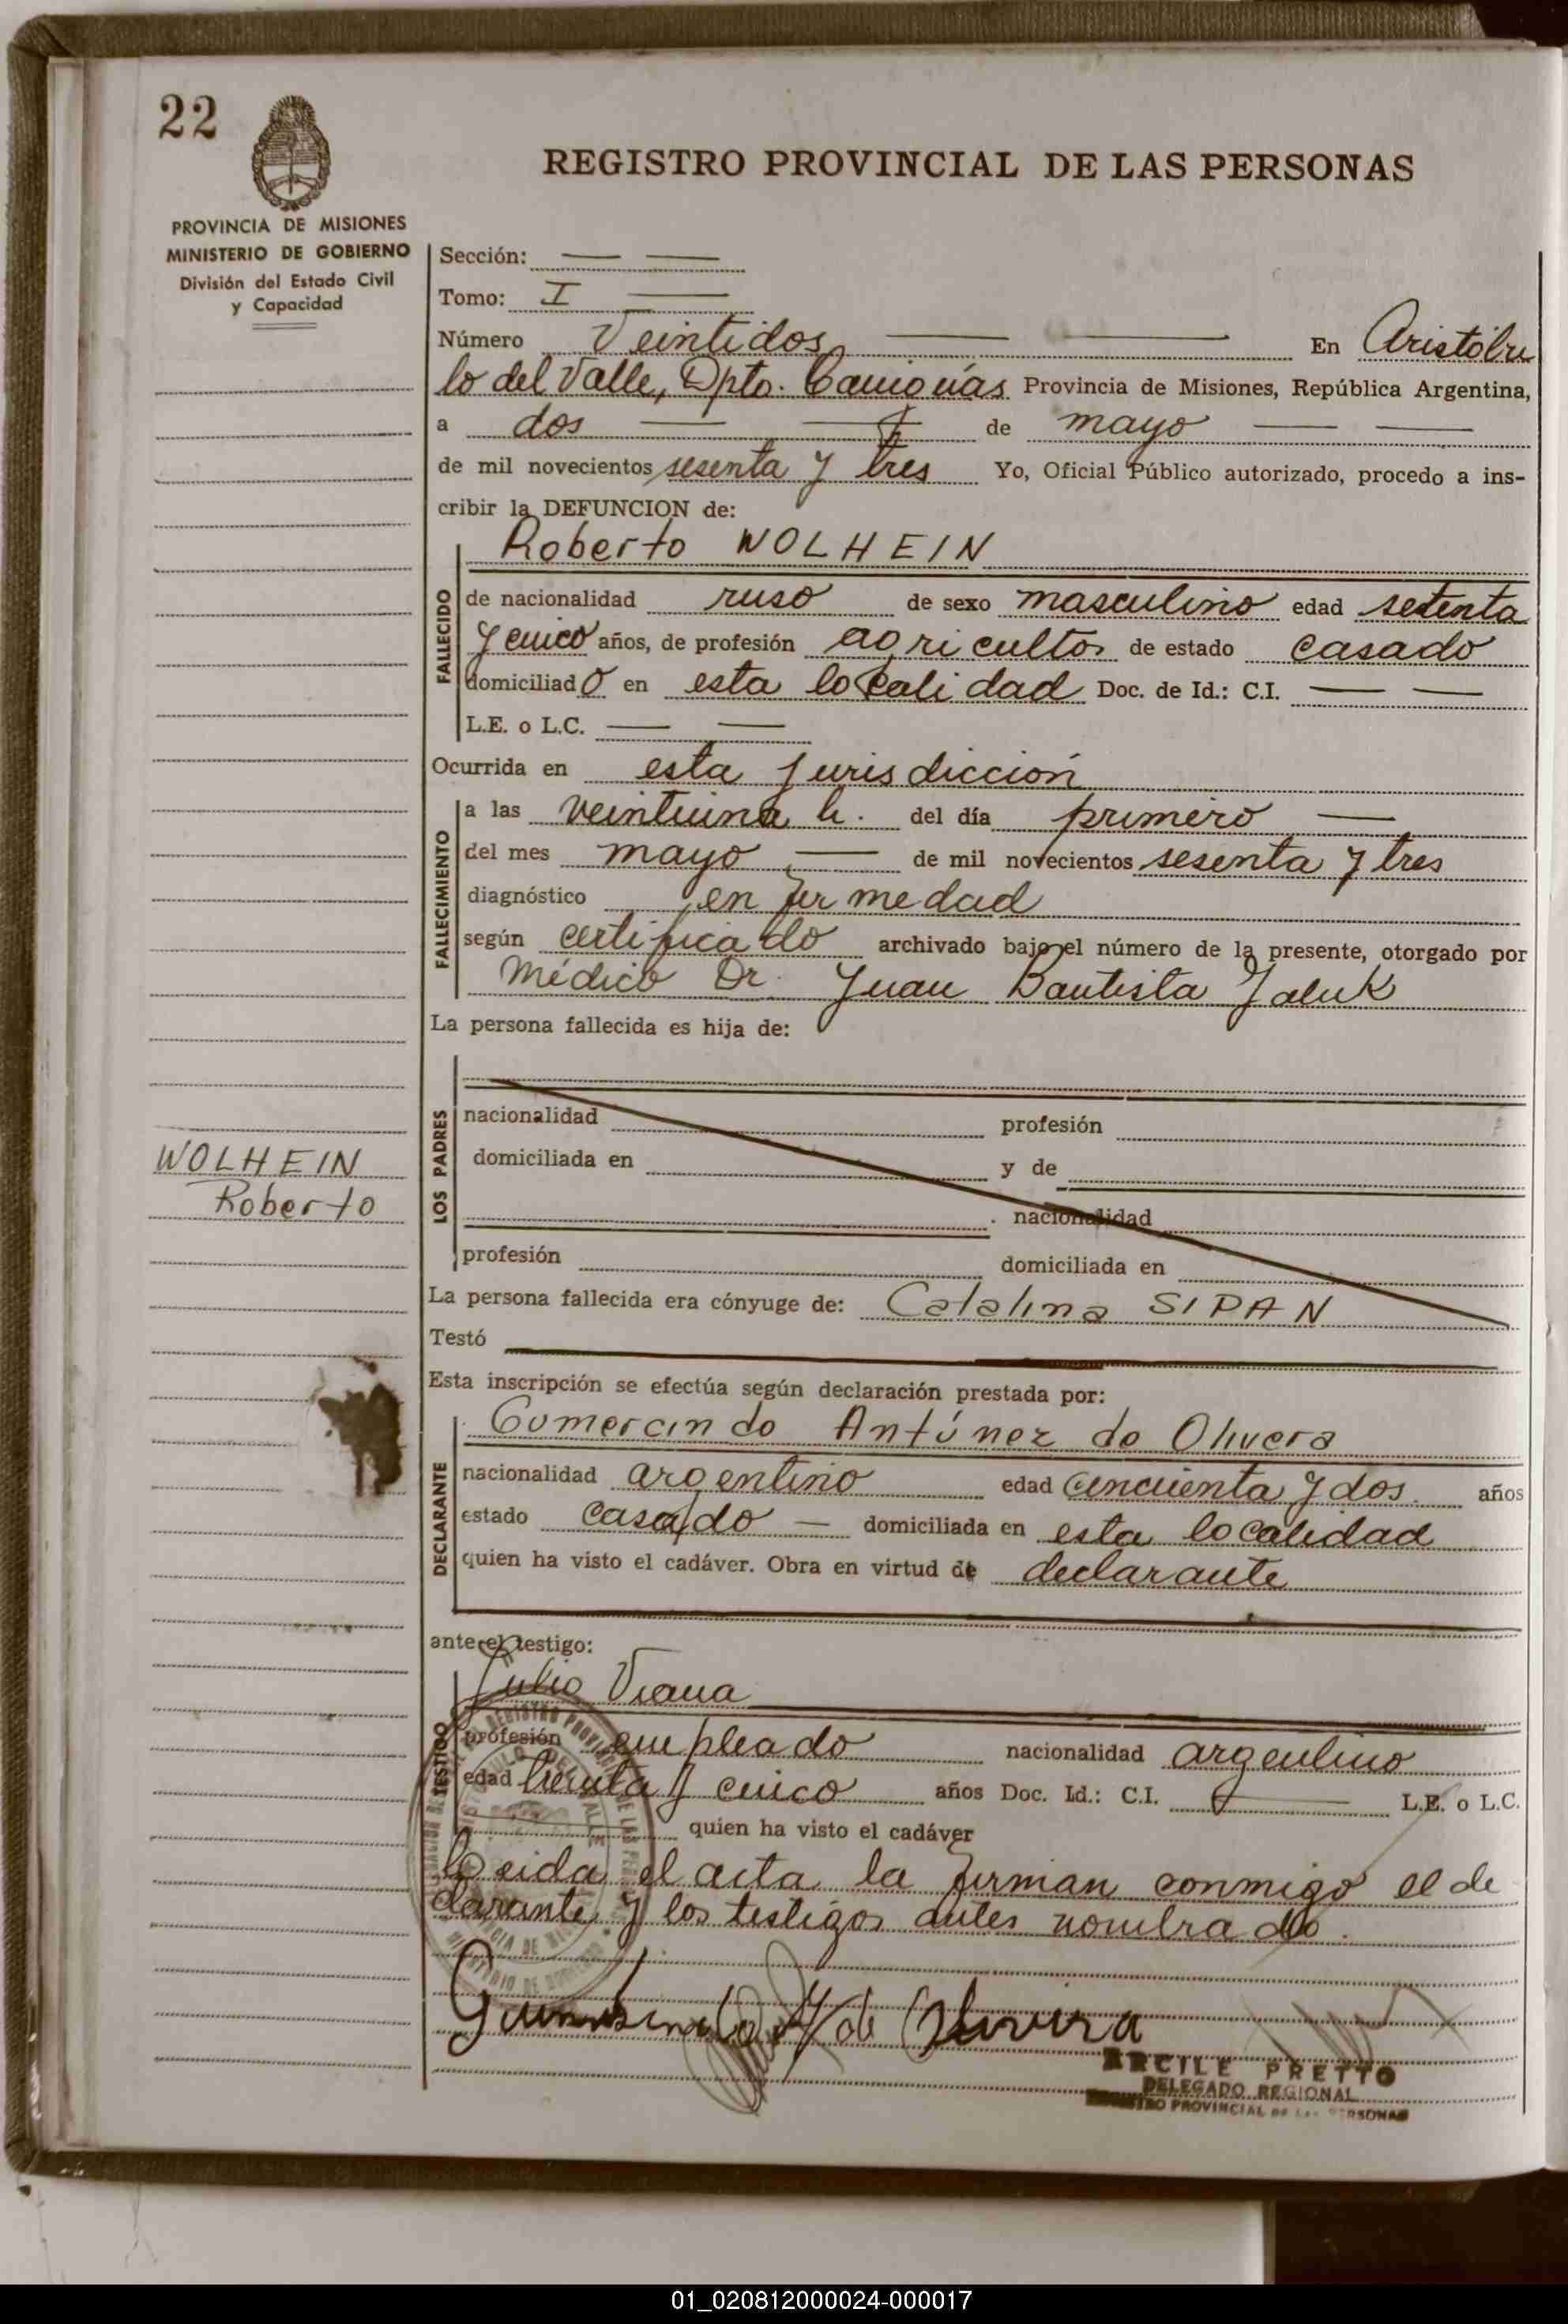 22
REGISTRO PROVINCIAL DE LAS PERSONAS
PROVINCIA DE MISIONES
MINISTERIO DE GOBIERNO
División del Estado Civil
y Capacidad
Sección:
Tomo: I
Número Veintidos En Aristóbu
lo del Valle, Dpto. Cainguás Provincia de Misiones, República Argentina,
a dos de mayo
de mil novecientos sesenta y tres Yo, Oficial Público autorizado, procedo a ins-
cribir la DEFUNCION de:
Roberto WOLHEIN
FALLECIDO
de nacionalidad ruso de sexo masculino edad setenta
y cinco años, de profesión agricultor de estado casado
domiciliado en esta localidad Doc. de Id.: C.I.
L.E. o L.C.
Ocurrida en esta jurisdicción
FALLECIMIENTO
a las veintiuna h. del día primero
del mes mayo de mil novecientos sesenta y tres
diagnóstico enfermedad
según certificado archivado bajo el número de la presente, otorgado por
Médico Dr. Juan Bautista Jaluk
La persona fallecida es hija de:
LOS PADRES
nacionalidad profesión
domiciliada en y de
nacionalidad
profesión domiciliada en
WOLHEIN
Roberto
La persona fallecida era cónyuge de: Catalina SIPAN
Testó
Esta inscripción se efectúa según declaración prestada por:
Gumercindo Antúnez de Olivera
DECLARANTE
nacionalidad argentino edad cincuenta y dos años
estado casado domiciliada en esta localidad
quien ha visto el cadáver. Obra en virtud de declarante
ante el testigo:
Julio Viana
TESTIGO
profesión empleado nacionalidad argentino
edad treinta y cinco años Doc. Id.: C.I. L.E. o L.C.
quien ha visto el cadáver
Leida el acta la firman conmigo el de
clarante y los testigos antes nombrado.
de Olivera
ERCILE PRETTO
DELEGADO REGIONAL
REGISTRO PROVINCIAL DE LAS PERSONAS
01_020812000024-000017